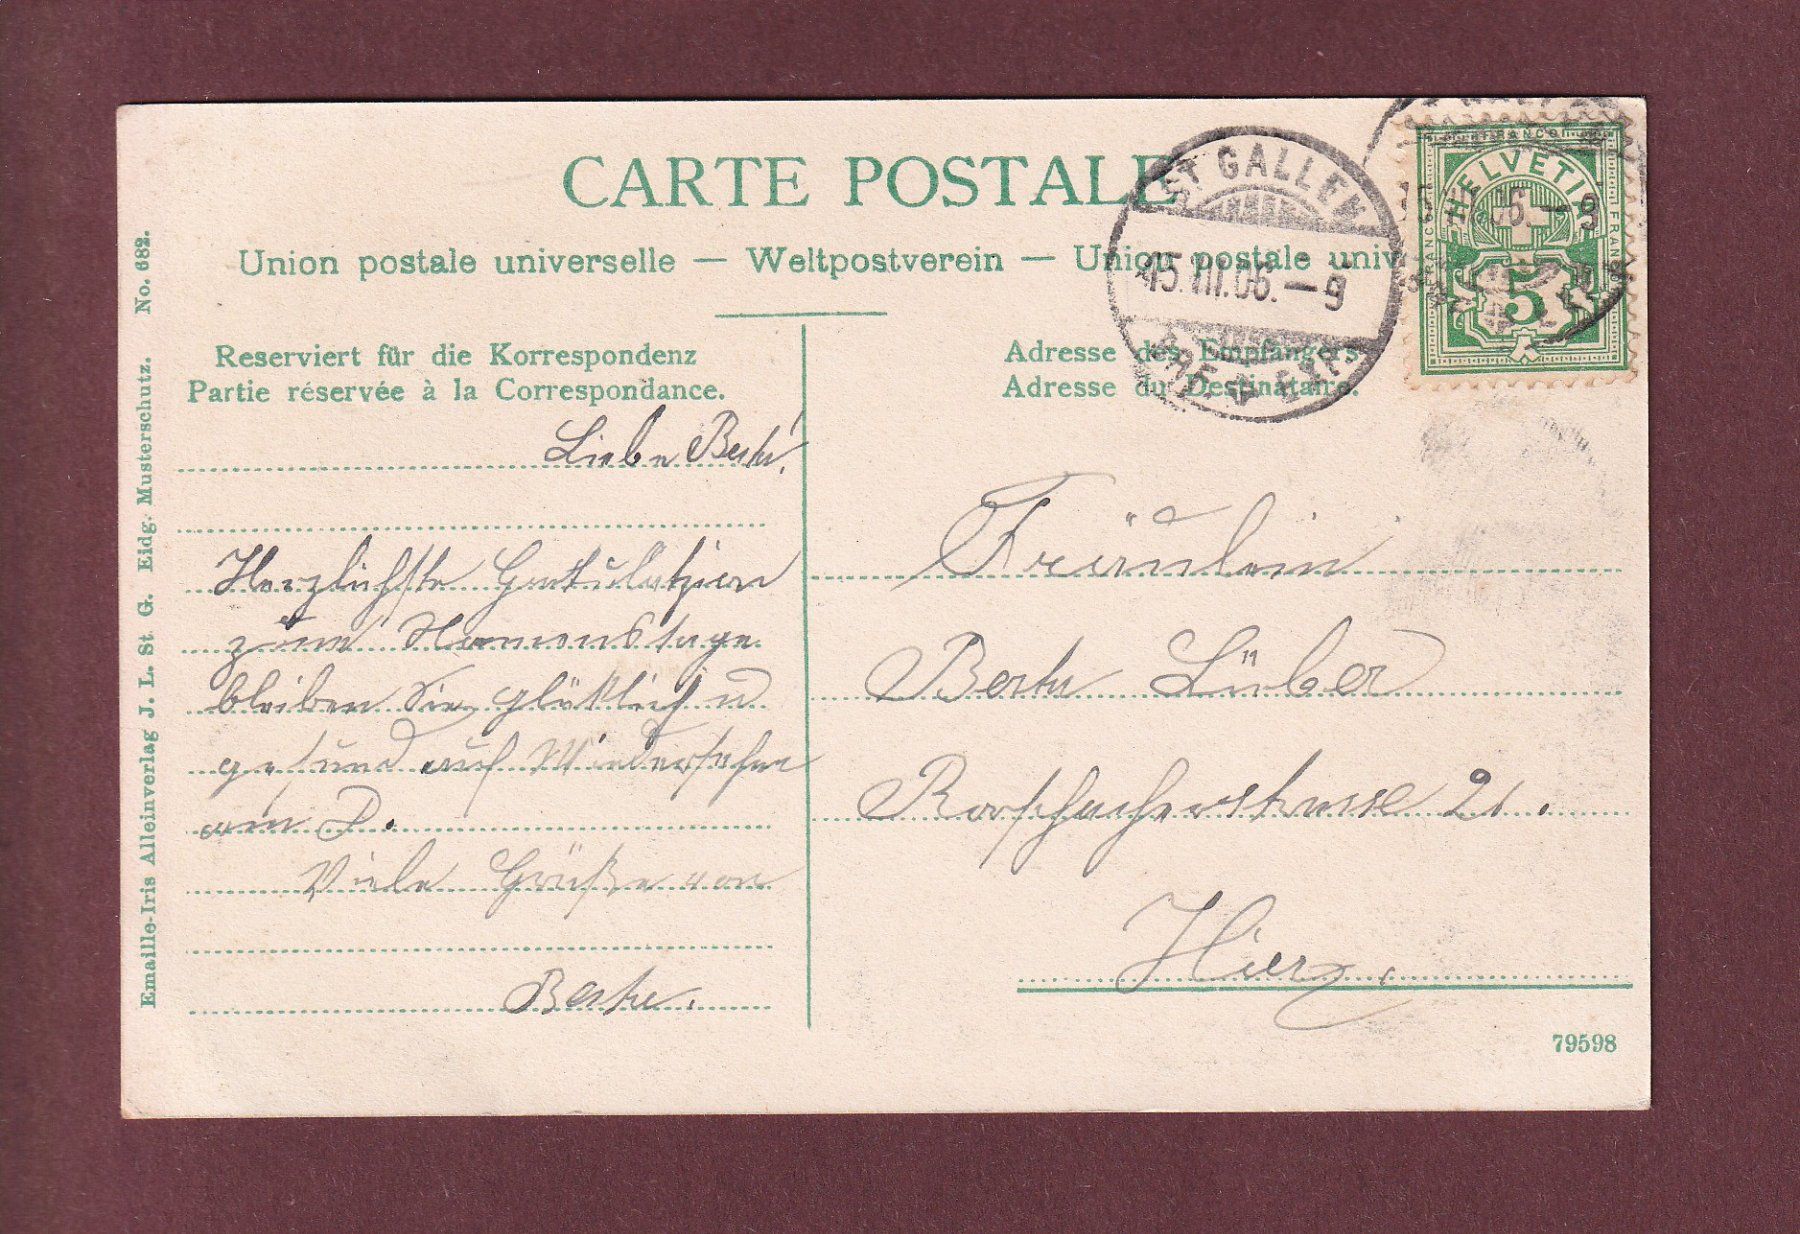 CARTE POSTALE
Union postale universelle — Weltpostverein — Union postale univ
Reserviert für die Korrespondenz
Partie réservée à la Correspondance.
Adresse des Empfängers.
Adresse du Destinataire.
ST. GALLEN
15.III.06.—9
BRF. EXP.
HELVETIA
FRANCO
5
15. 06.—9
Liebe Berta!
Herzlichste Gratulation
zum Namenstage
bleiben Sie glücklich u
gesund auf Wiedersehn
am D.
Viele Grüße von
Berta.
Fräulein
Berta Lüber
Rorschacherstrasse 21.
Hier.
79598
Emaille-Iris Alleinverlag J. L. St. G. Eidg. Musterschutz. No. 682.